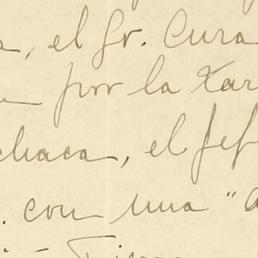 , el Sr. Cura
por la Tar
chaca, el jef
. con una "